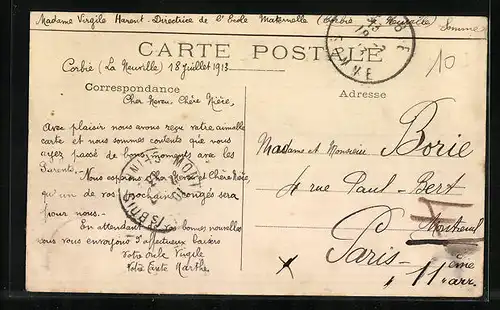 Madame Virgile Harent - Directrice de l'Ecole Maternelle (Corbie La Neuville) Somme
CARTE POSTALE
Corbie (La Neuville) 18 Juillet 1913
10
Correspondance
Cher Neveu Chère Nièce,
Avec plaisir nous avons reçu votre aimable
carte et nous sommes contents que vous
ayez passé de bons moments avec les
Parents.
Nous espérons Cher Neveu et Chère Nièce,
qu'un de vos prochains congés sera
pour nous.
En attendant vos bonnes nouvelles
nous vous envoyons d'affectueux baisers
Votre oncle Virgile
Votre tante Marthe
Adresse
Madame et Monsieur Borie
4 rue Paul-Bert
Montreuil
Paris
11ème
arr.